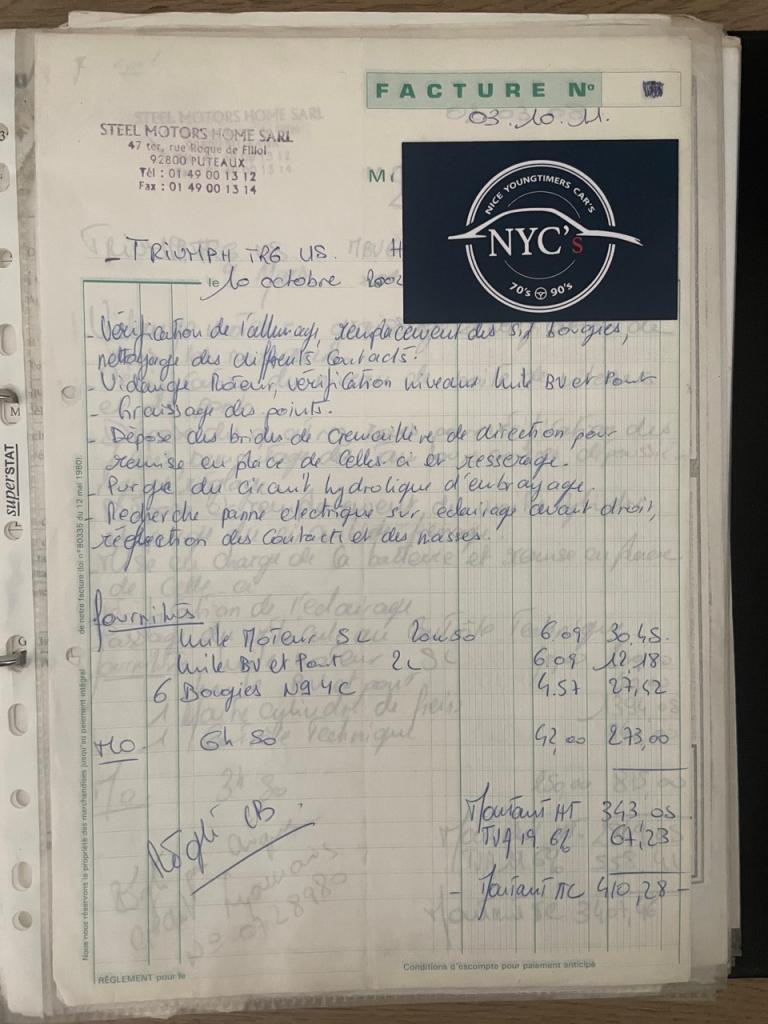 FACTURE No
03.10.01.
STEEL MOTORS HOME SARL
47 ter, rue Roque de Fillol
92800 PUTEAUX
Tél : 01 49 00 13 12
Fax : 01 49 00 13 14
M
NICE YOUNGTIMERS CAR'S
NYC's
70's 90's
- TRIUMPH TR6 US.
le 10 octobre 2002
- Vérification de l'allumage, remplacement des six bougies,
nettoyage des différents contacts.
- Vidange Moteur, vérification niveaux huile BV et Pont
- Graissage des points.
- Dépose des brides de cremaillère de direction pour
remise en place de celles-ci et resserage.
- Purge du circuit hydrolique d'embrayage.
- Recherche panne electrique sur eclairage avant droit,
réfection des contacts et des masses.
fournitures
huile Moteur 5L 20W50 6.09 30,45.
huile BV et Pont 2L 6.09 12,18
6 Bougies N94C 4.57 27,42
MO 6h50 42,00 273,00
Montant HT 343,05
TVA 19,6% 67,23
Réglé CB.
- Montant TTC 410,28 -
RÈGLEMENT pour le
Conditions d'escompte pour paiement anticipé
Nous nous réservons la propriété des marchandises jusqu'au paiement intégral de notre facture (loi n° 80335 du 12 mai 1980).
superSTAT